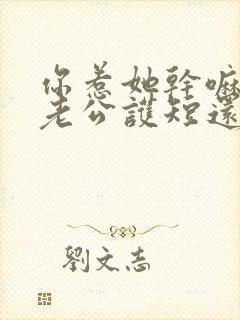 你惹她幹嘛
老公護短還
劉文志